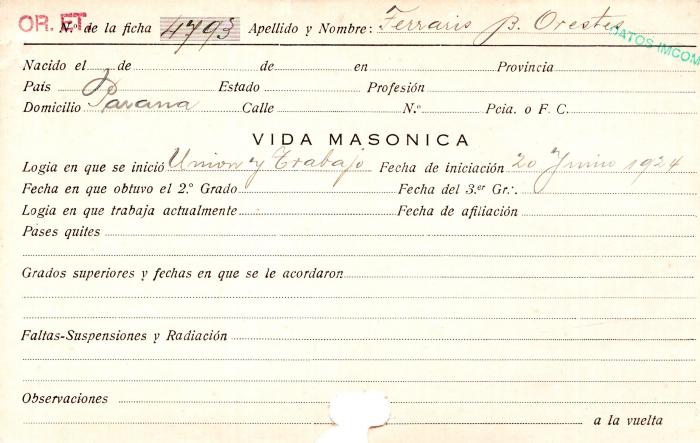 OR. ET.
N.º de la ficha 4793 Apellido y Nombre: Ferraris B. Orestes
DATOS INCOM
Nacido el de de en Provincia
País Estado Profesión
Domicilio Parana Calle N.º Pcia. o F. C.
VIDA MASONICA
Logia en que se inició Union y Trabajo Fecha de iniciación 20 Junio 1924
Fecha en que obtuvo el 2.º Grado Fecha del 3.er Gr∴
Logia en que trabaja actualmente Fecha de afiliación
Pases quites
Grados superiores y fechas en que se le acordaron
Faltas-Suspensiones y Radiación
Observaciones
a la vuelta